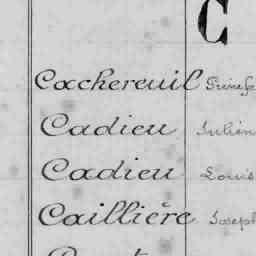 C
Cachereuil
Cadieu Julien
Cadieu Louis
Caillière Joseph